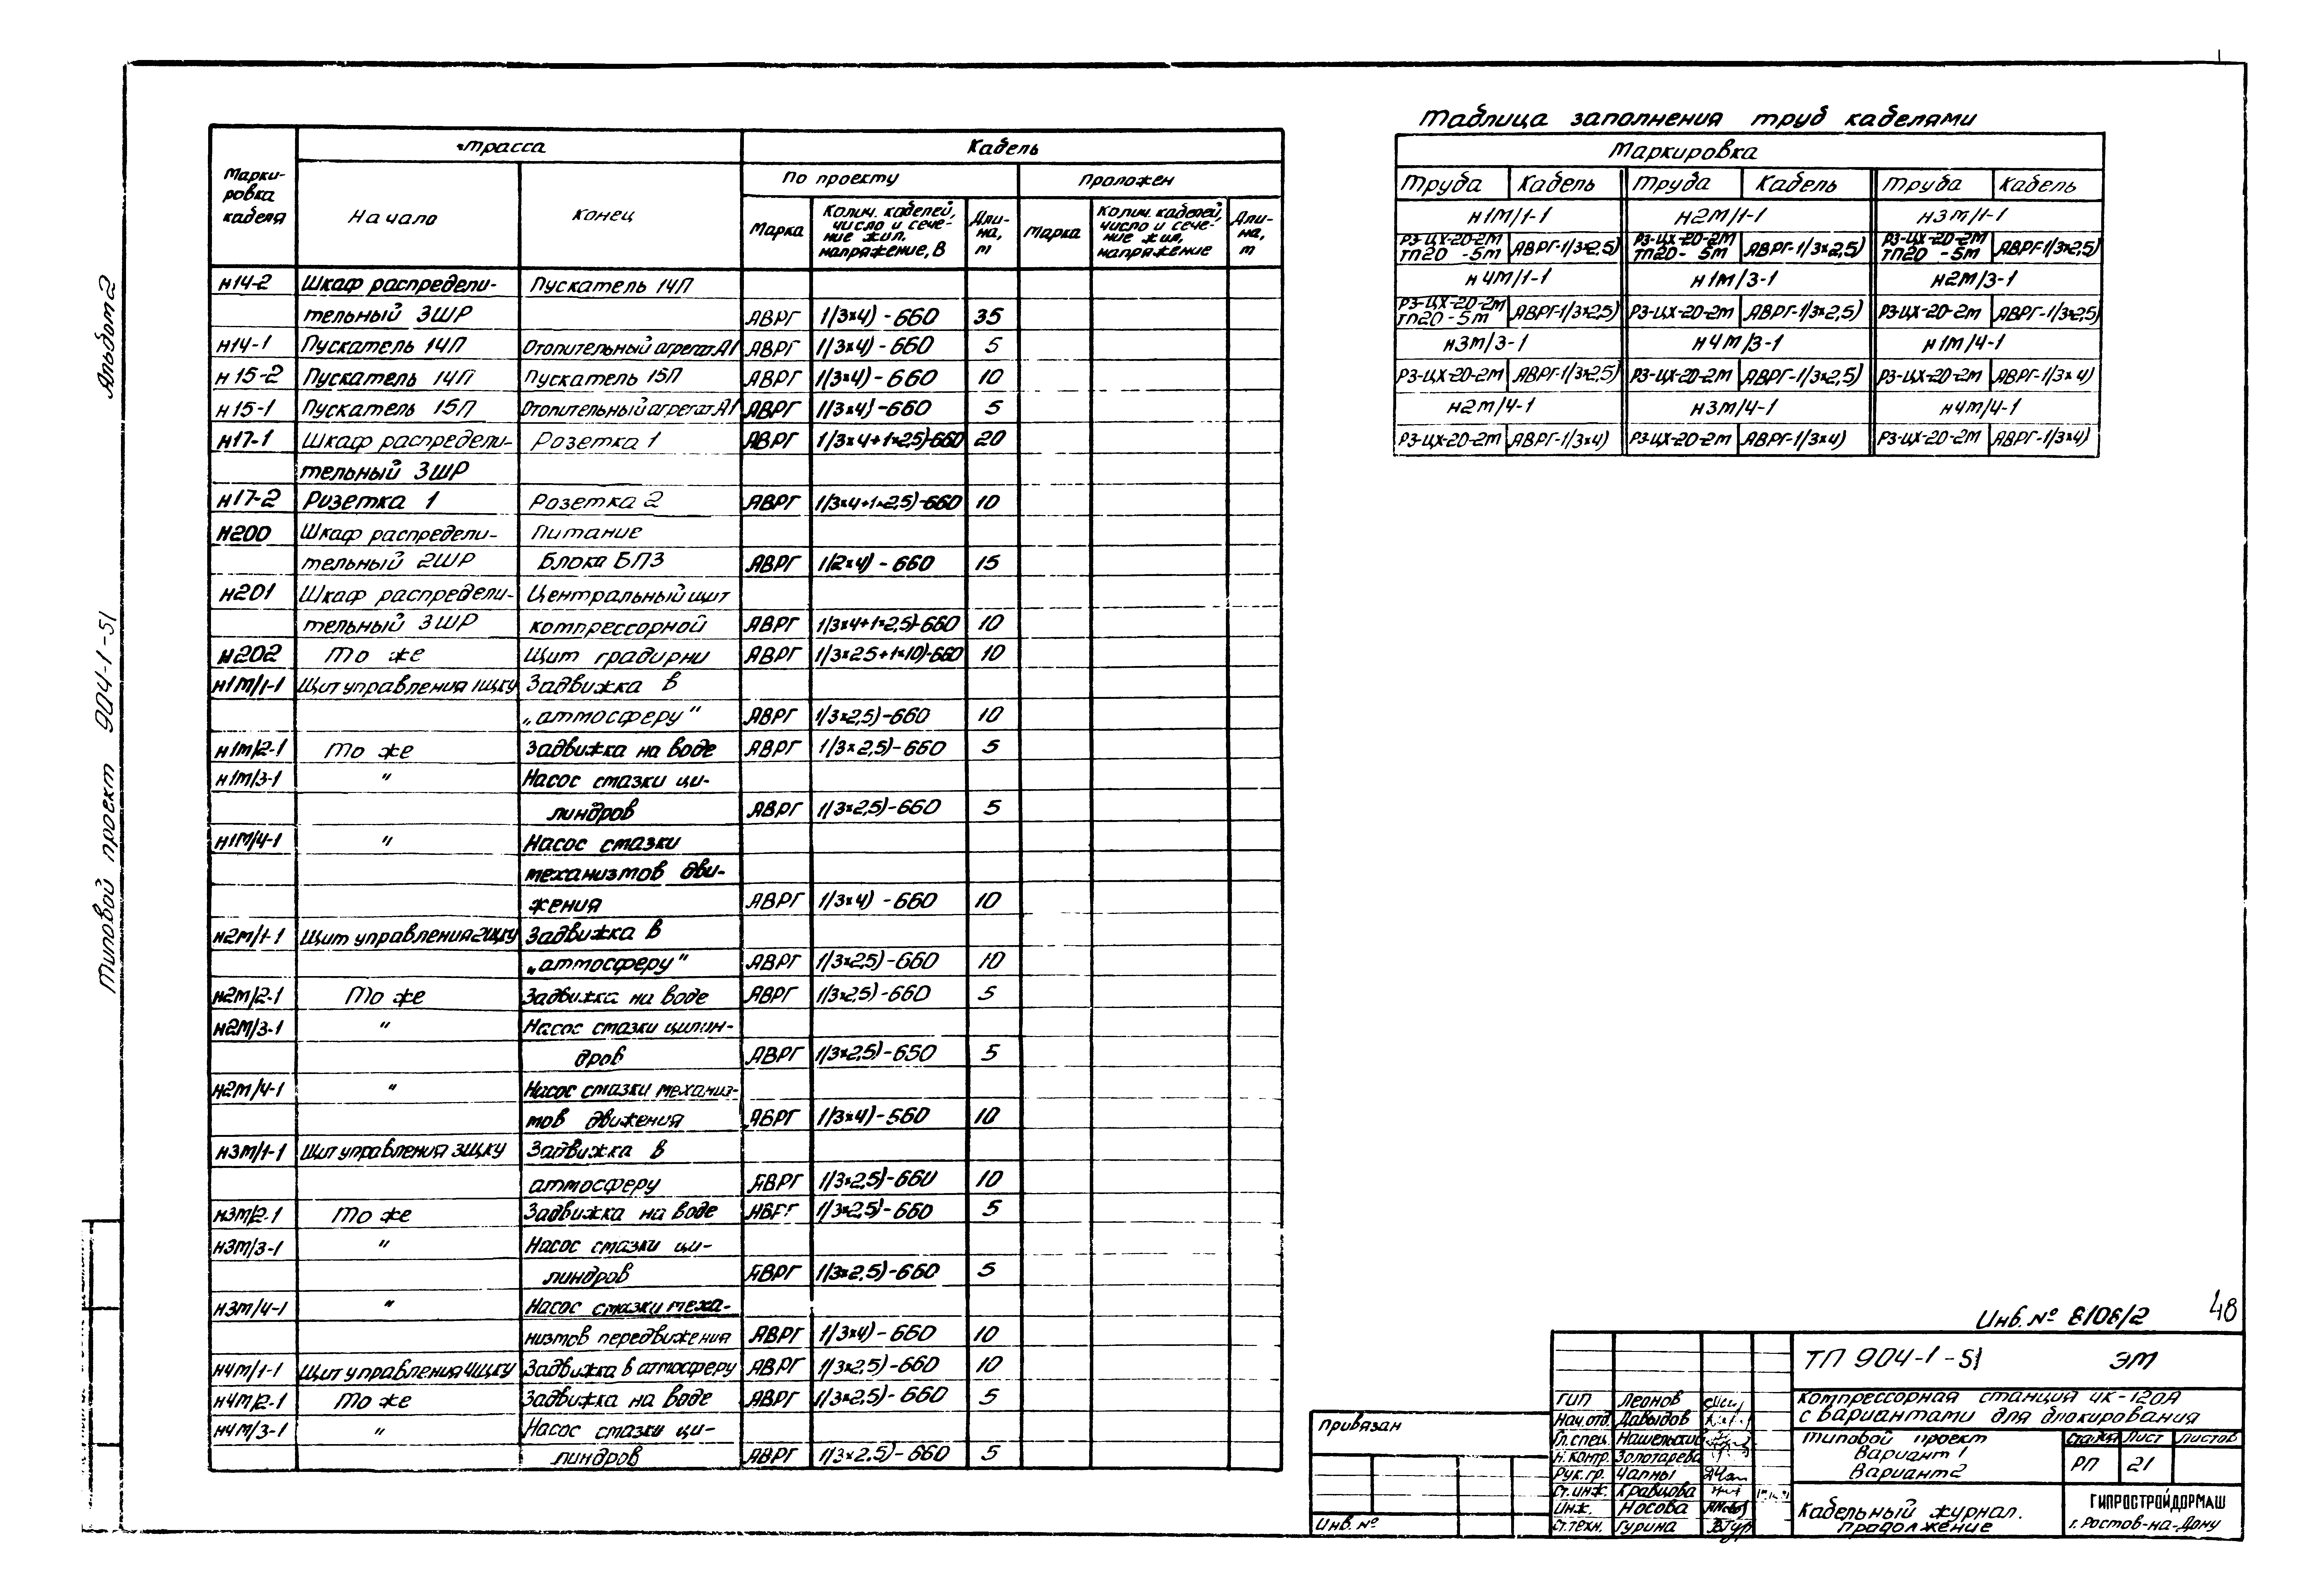 Альбом 2
Типовой проект 904-1-51
Маркировка кабеля | трасса | Кабель
Начало | Конец | По проекту | Проложен
Марка | Колич. кабелей, число и сечение жил, напряжение, В | Длина, м | Марка | Колич. кабелей, число и сечение жил, напряжение | Длина, м
н14-2 | Шкаф распредели- | Пускатель 14П
тельный 3ШР | АВРГ | 1(3×4)-660 | 35
н14-1 | Пускатель 14П | Отопительный агрегат А1 | АВРГ | 1(3×4)-660 | 5
н15-2 | Пускатель 14П | Пускатель 15П | АВРГ | 1(3×4)-660 | 10
н15-1 | Пускатель 15П | Отопительный агрегат А1 | АВРГ | 1(3×4)-660 | 5
н17-1 | Шкаф распредели- | Розетка 1 | АВРГ | 1(3×4+1×2,5)-660 | 20
тельный 3ШР
н17-2 | Розетка 1 | Розетка 2 | АВРГ | 1(3×4+1×2,5)-660 | 10
н200 | Шкаф распредели- | Питание
тельный 2ШР | Блока БПЗ | АВРГ | 1(2×4)-660 | 15
н201 | Шкаф распредели- | Центральный щит
тельный 3ШР | компрессорной | АВРГ | 1(3×4+1×2,5)-660 | 10
н202 | То же | Щит градирни | АВРГ | 1(3×25+1×10)-660 | 10
н1м/1-1 | Щит управления 1щку | Задвижка в
„аттмосферу" | АВРГ | 1(3×2,5)-660 | 10
н1м/2-1 | То же | Задвижка на воде | АВРГ | 1(3×2,5)-660 | 5
н1м/3-1 | " | Насос смазки ци-
линдров | АВРГ | 1(3×2,5)-660 | 5
н1м/4-1 | " | Насос смазки
механизмов дви-
жения | АВРГ | 1(3×4)-660 | 10
н2м/1-1 | Щит управления 2щку | Задвижка в
„аттмосферу" | АВРГ | 1(3×2,5)-660 | 10
н2м/2-1 | То же | Задвижка на воде | АВРГ | 1(3×2,5)-660 | 5
н2м/3-1 | " | Насос смазки цилин-
дров | АВРГ | 1(3×2,5)-650 | 5
н2м/4-1 | " | Насос смазки механиз-
мов движения | АВРГ | 1(3×4)-560 | 10
н3м/1-1 | Щит управления 3щку | Задвижка в
аттмосферу | АВРГ | 1(3×2,5)-660 | 10
н3м/2-1 | То же | Задвижка на воде | АВРГ | 1(3×2,5)-660 | 5
н3м/3-1 | " | Насос смазки ци-
линдров | АВРГ | 1(3×2,5)-660 | 5
н3м/4-1 | " | Насос смазки меха-
низмов передвижения | АВРГ | 1(3×4)-660 | 10
н4м/1-1 | Щит управления 4щку | Задвижка в атмосферу | АВРГ | 1(3×2,5)-660 | 10
н4м/2-1 | То же | Задвижка на воде | АВРГ | 1(3×2,5)-660 | 5
н4м/3-1 | " | Насос смазки ци-
линдров | АВРГ | 1(3×2,5)-660 | 5
Таблица заполнения труб кабелями
Маркировка
Труба | Кабель | Труба | Кабель | Труба | Кабель
н1м/1-1 | н2м/1-1 | н3м/1-1
РЗ-ЦХ-20-2м ТП20-5м | АВРГ-1(3×2,5) | РЗ-ЦХ-20-2м ТП20-5м | АВРГ-1(3×2,5) | РЗ-ЦХ-20-2м ТП20-5м | АВРГ-1(3×2,5)
н4м/1-1 | н1м/3-1 | н2м/3-1
РЗ-ЦХ-20-2м ТП20-5м | АВРГ-1(3×2,5) | РЗ-ЦХ-20-2м | АВРГ-1(3×2,5) | РЗ-ЦХ-20-2м | АВРГ-1(3×2,5)
н3м/3-1 | н4м/3-1 | н1м/4-1
РЗ-ЦХ-20-2м | АВРГ-1(3×2,5) | РЗ-ЦХ-20-2м | АВРГ-1(3×2,5) | РЗ-ЦХ-20-2м | АВРГ-1(3×4)
н2м/4-1 | н3м/4-1 | н4м/4-1
РЗ-ЦХ-20-2м | АВРГ-1(3×4) | РЗ-ЦХ-20-2м | АВРГ-1(3×4) | РЗ-ЦХ-20-2м | АВРГ-1(3×4)
Инв. № 8106/2 48
ТП 904-1-51 ЭМ
Компрессорная станция 4К-120А
с вариантами для блокирования
Типовой проект
Вариант 1
Вариант 2
Стадия | Лист | Листов
РП | 21
Кабельный журнал.
Продолжение
ГИПРОСТРОЙДОРМАШ
г. Ростов-на-Дону
ГИП Леонов
Нач. отд. Давыдов
Гл. спец. Нашельский
Н. контр. Золотарева
Рук. гр. Чапны
Ст. инж. Кравцова
Инж. Носова
Ст. техн. Гурина
Привязан
Инв. №